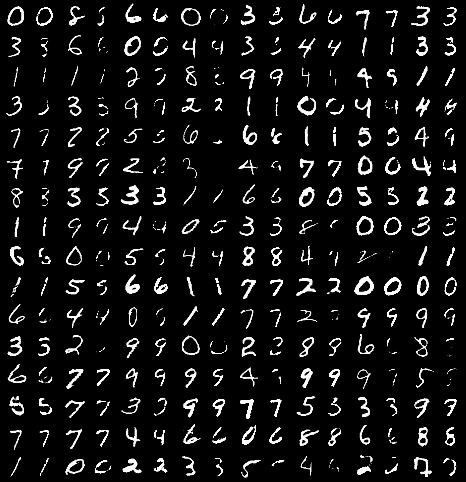 0 0 8 5 6 6 0 0 3 3 6 6 7 7 3 3
3 3 6 6 0 0 4 4 3 3 4 4 1 1 3 3
1 1 1 1 2 2 8 8 9 9 4 4 4 9 1 1
3 3 3 9 9 2 2 1 1 0 0 4 4 4 4
7 7 2 2 5 5 6 6 8 1 1 5 5 4 9
7 7 9 9 2 2 3 4 9 7 7 0 0 4 4
8 8 3 5 3 3 1 1 6 6 0 0 5 5 2 2
1 1 9 9 4 4 0 5 3 3 8 0 0 3 3
6 6 0 0 5 5 4 4 8 8 4 9 2 1 1
1 1 5 5 6 6 1 1 7 7 2 2 0 0 0 0
6 6 4 4 0 9 1 1 7 7 2 9 9 9 9
3 5 2 9 9 0 0 2 2 8 8 6 6 8
6 6 7 7 9 9 9 9 4 9 9 9 9 9 5 5
5 5 7 7 3 3 9 9 7 7 5 3 3 3 9 9
7 7 7 7 4 4 6 6 0 6 8 8 6 6 8 8
1 1 0 0 2 2 3 3 5 4 6 2 7 7